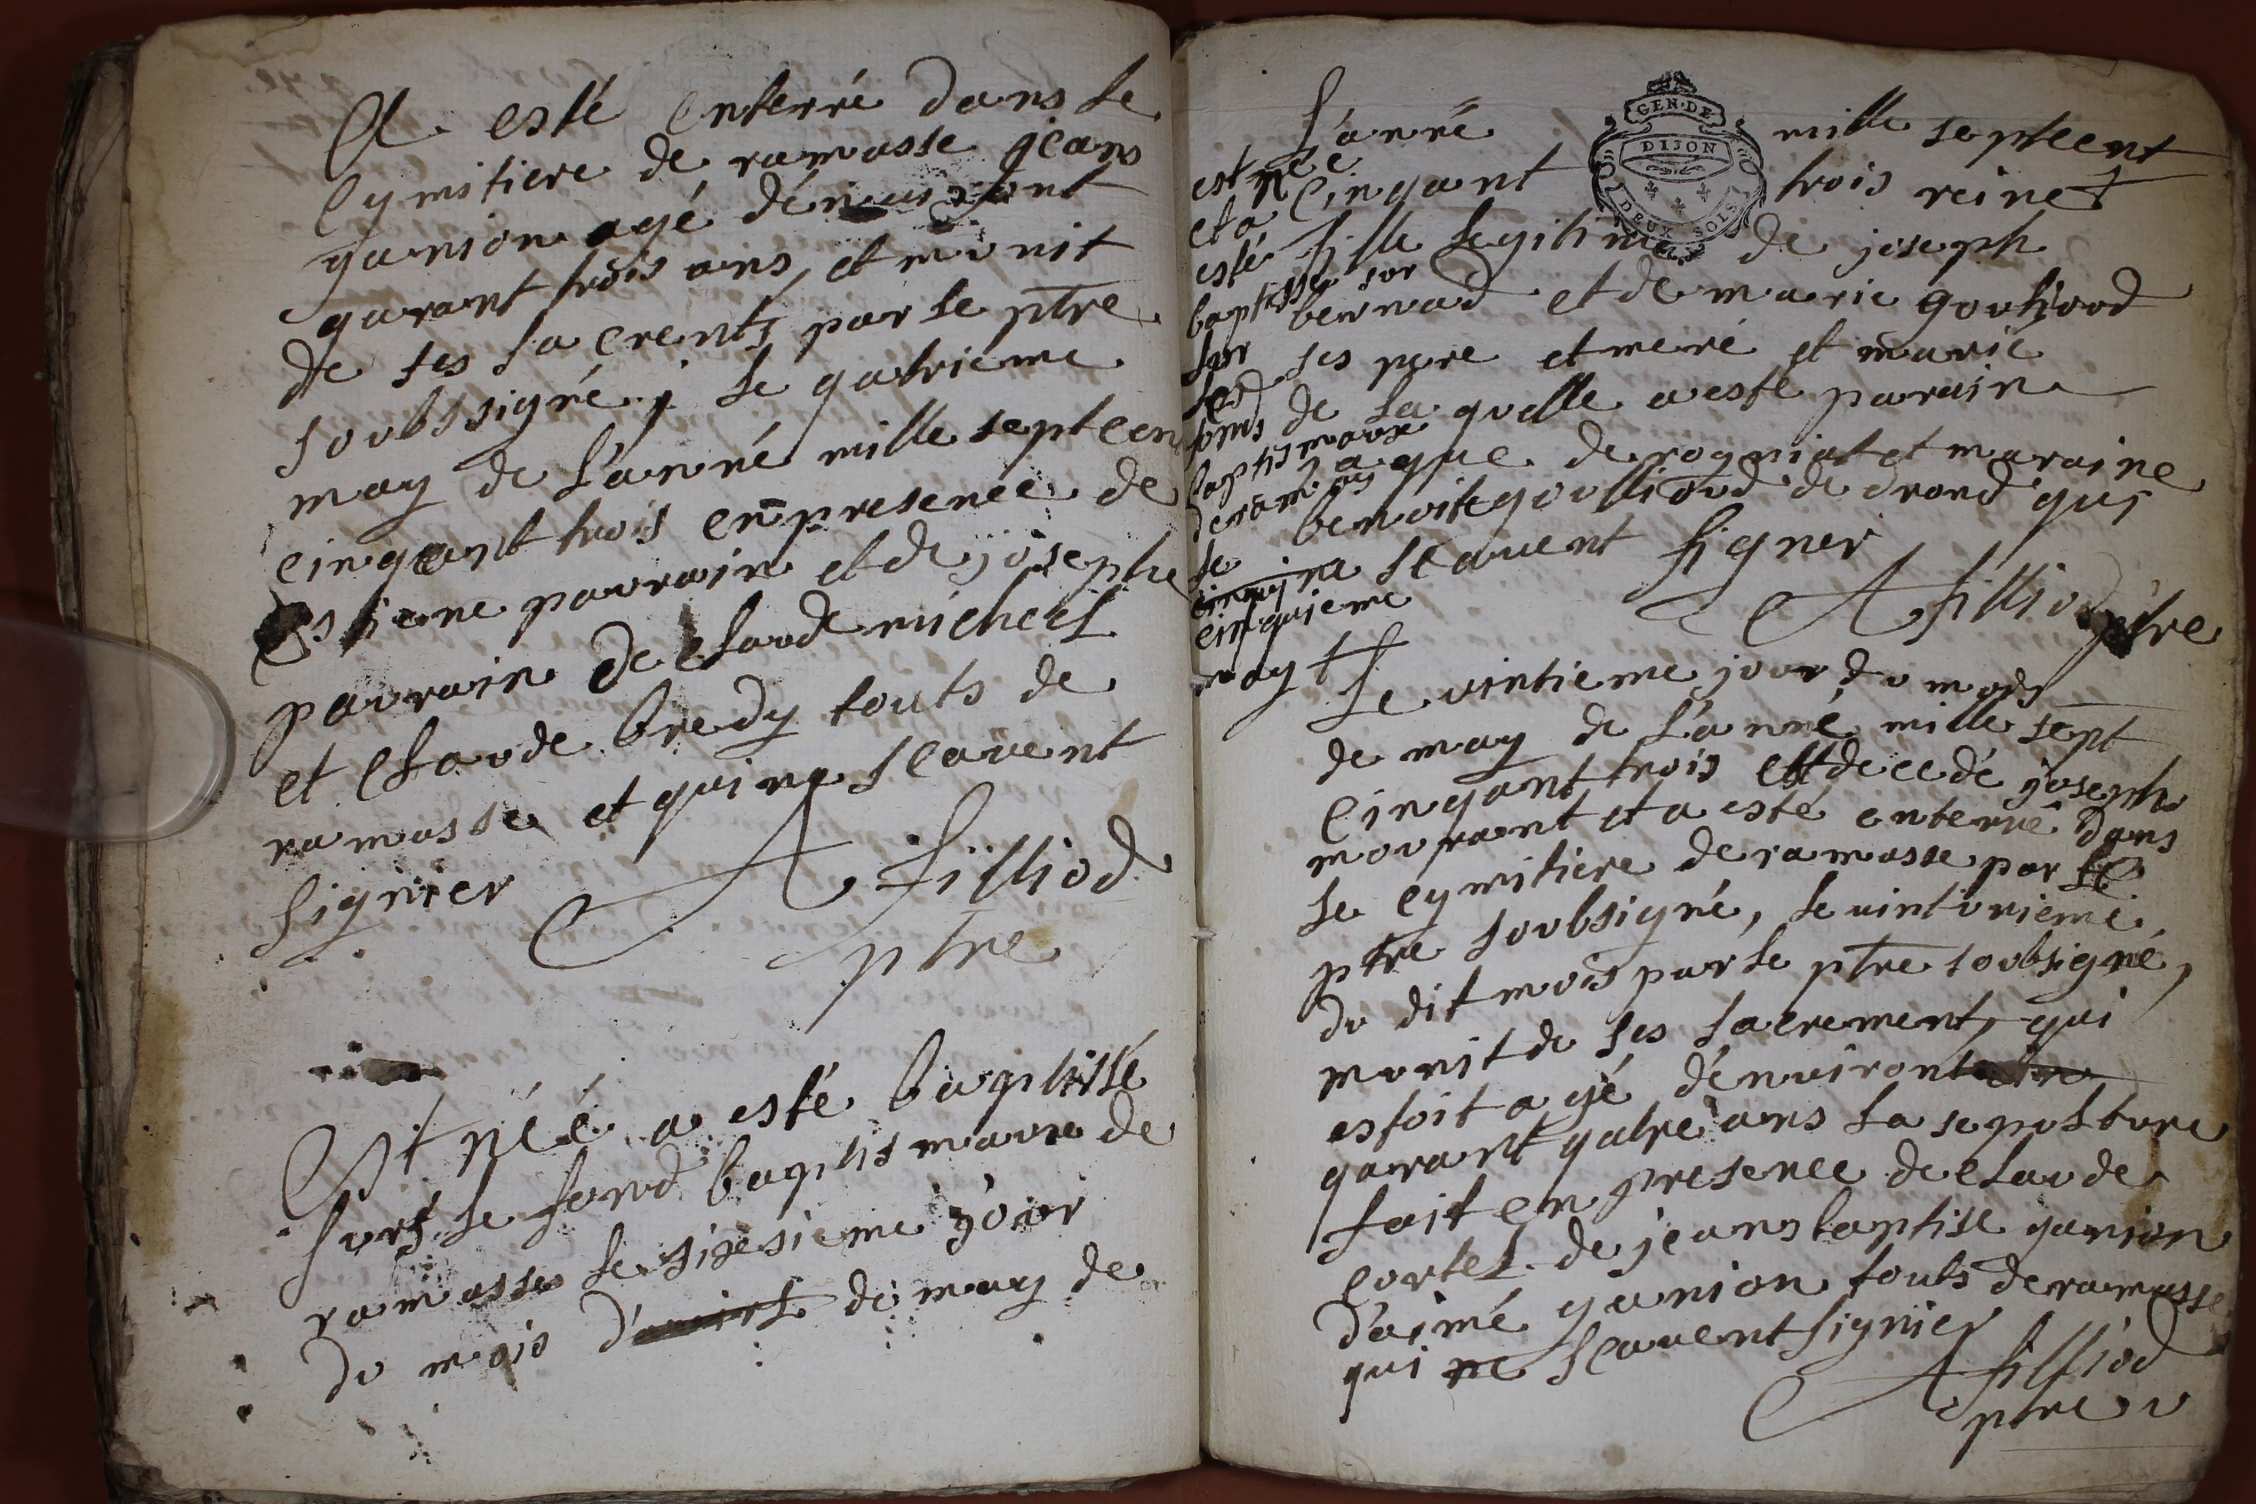 A esté enterré dans le
cymitiere de ramasse jean
ganion agé d'environt
quarant trois ans, et munit
de ses sacrents par le ptre
soubssigné, le quatrieme
may de l'anné mille septcen
cinquant trois en presence de
estiene pauvrain et de joseph
pauvrain de claude michel
et claude bredy touts de
ramasse et qui ne scavent
signier A filliod
ptre
Est néé a esté baptissé
surs le fond baptismaux de
ramasse le sixesieme jour
du mois de may de
L'anné mille septcent
cinquant trois reine
fille legitime de joseph
bernad et de marie gouliood
ses pere et mere et marié
de la quelle a esté parain
jaque derogniat et maraine
benoite goulliood de drond qui
ne scavent signer
A filliod ptre
est néé
et a
esté
baptissé sur
sur
les
fons
baptismaux
deramasse
le
cinquieme
may
GEN. DE
DIJON
DEUX SOLS
Le vintieme jour du mois
de may de l'anné mille sept
cinquant trois est decedé joseph
mourant et a esté enterré dans
le cymitiere de ramasse par le
ptre soubsigné, le vintunieme
du dit mois par le ptre soubsigné,
munit de ses sacrement, qui
estoit agé d'environt
quarant quatre ans la sepulture
fait en presence de claude
cortel de jeans baptise ganion
d'aimé ganion touts de ramasse
qui ne scavent signier
A filliod
ptre v